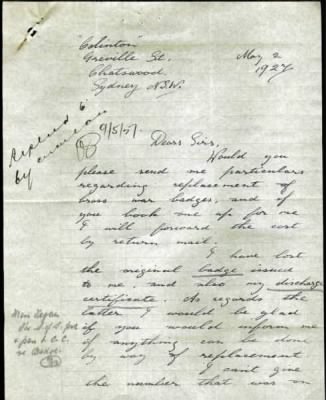 "Colinton"
Greville St.
Chatswood
Sydney N.S.W.
May 2
1927
9/5/27.
Dears Sirs,
Would you
please send me particulars
regarding replacement of
brass war badges, and if
you book me up for one
I will forward the cost
by return mail.
I have lost
the original badge issued
to me, and also my discharge
certificate. As regards the
latter I would be glad
if you would inform me
if anything can be done
by way of replacement
I can't give
the number that was on
by
Miss